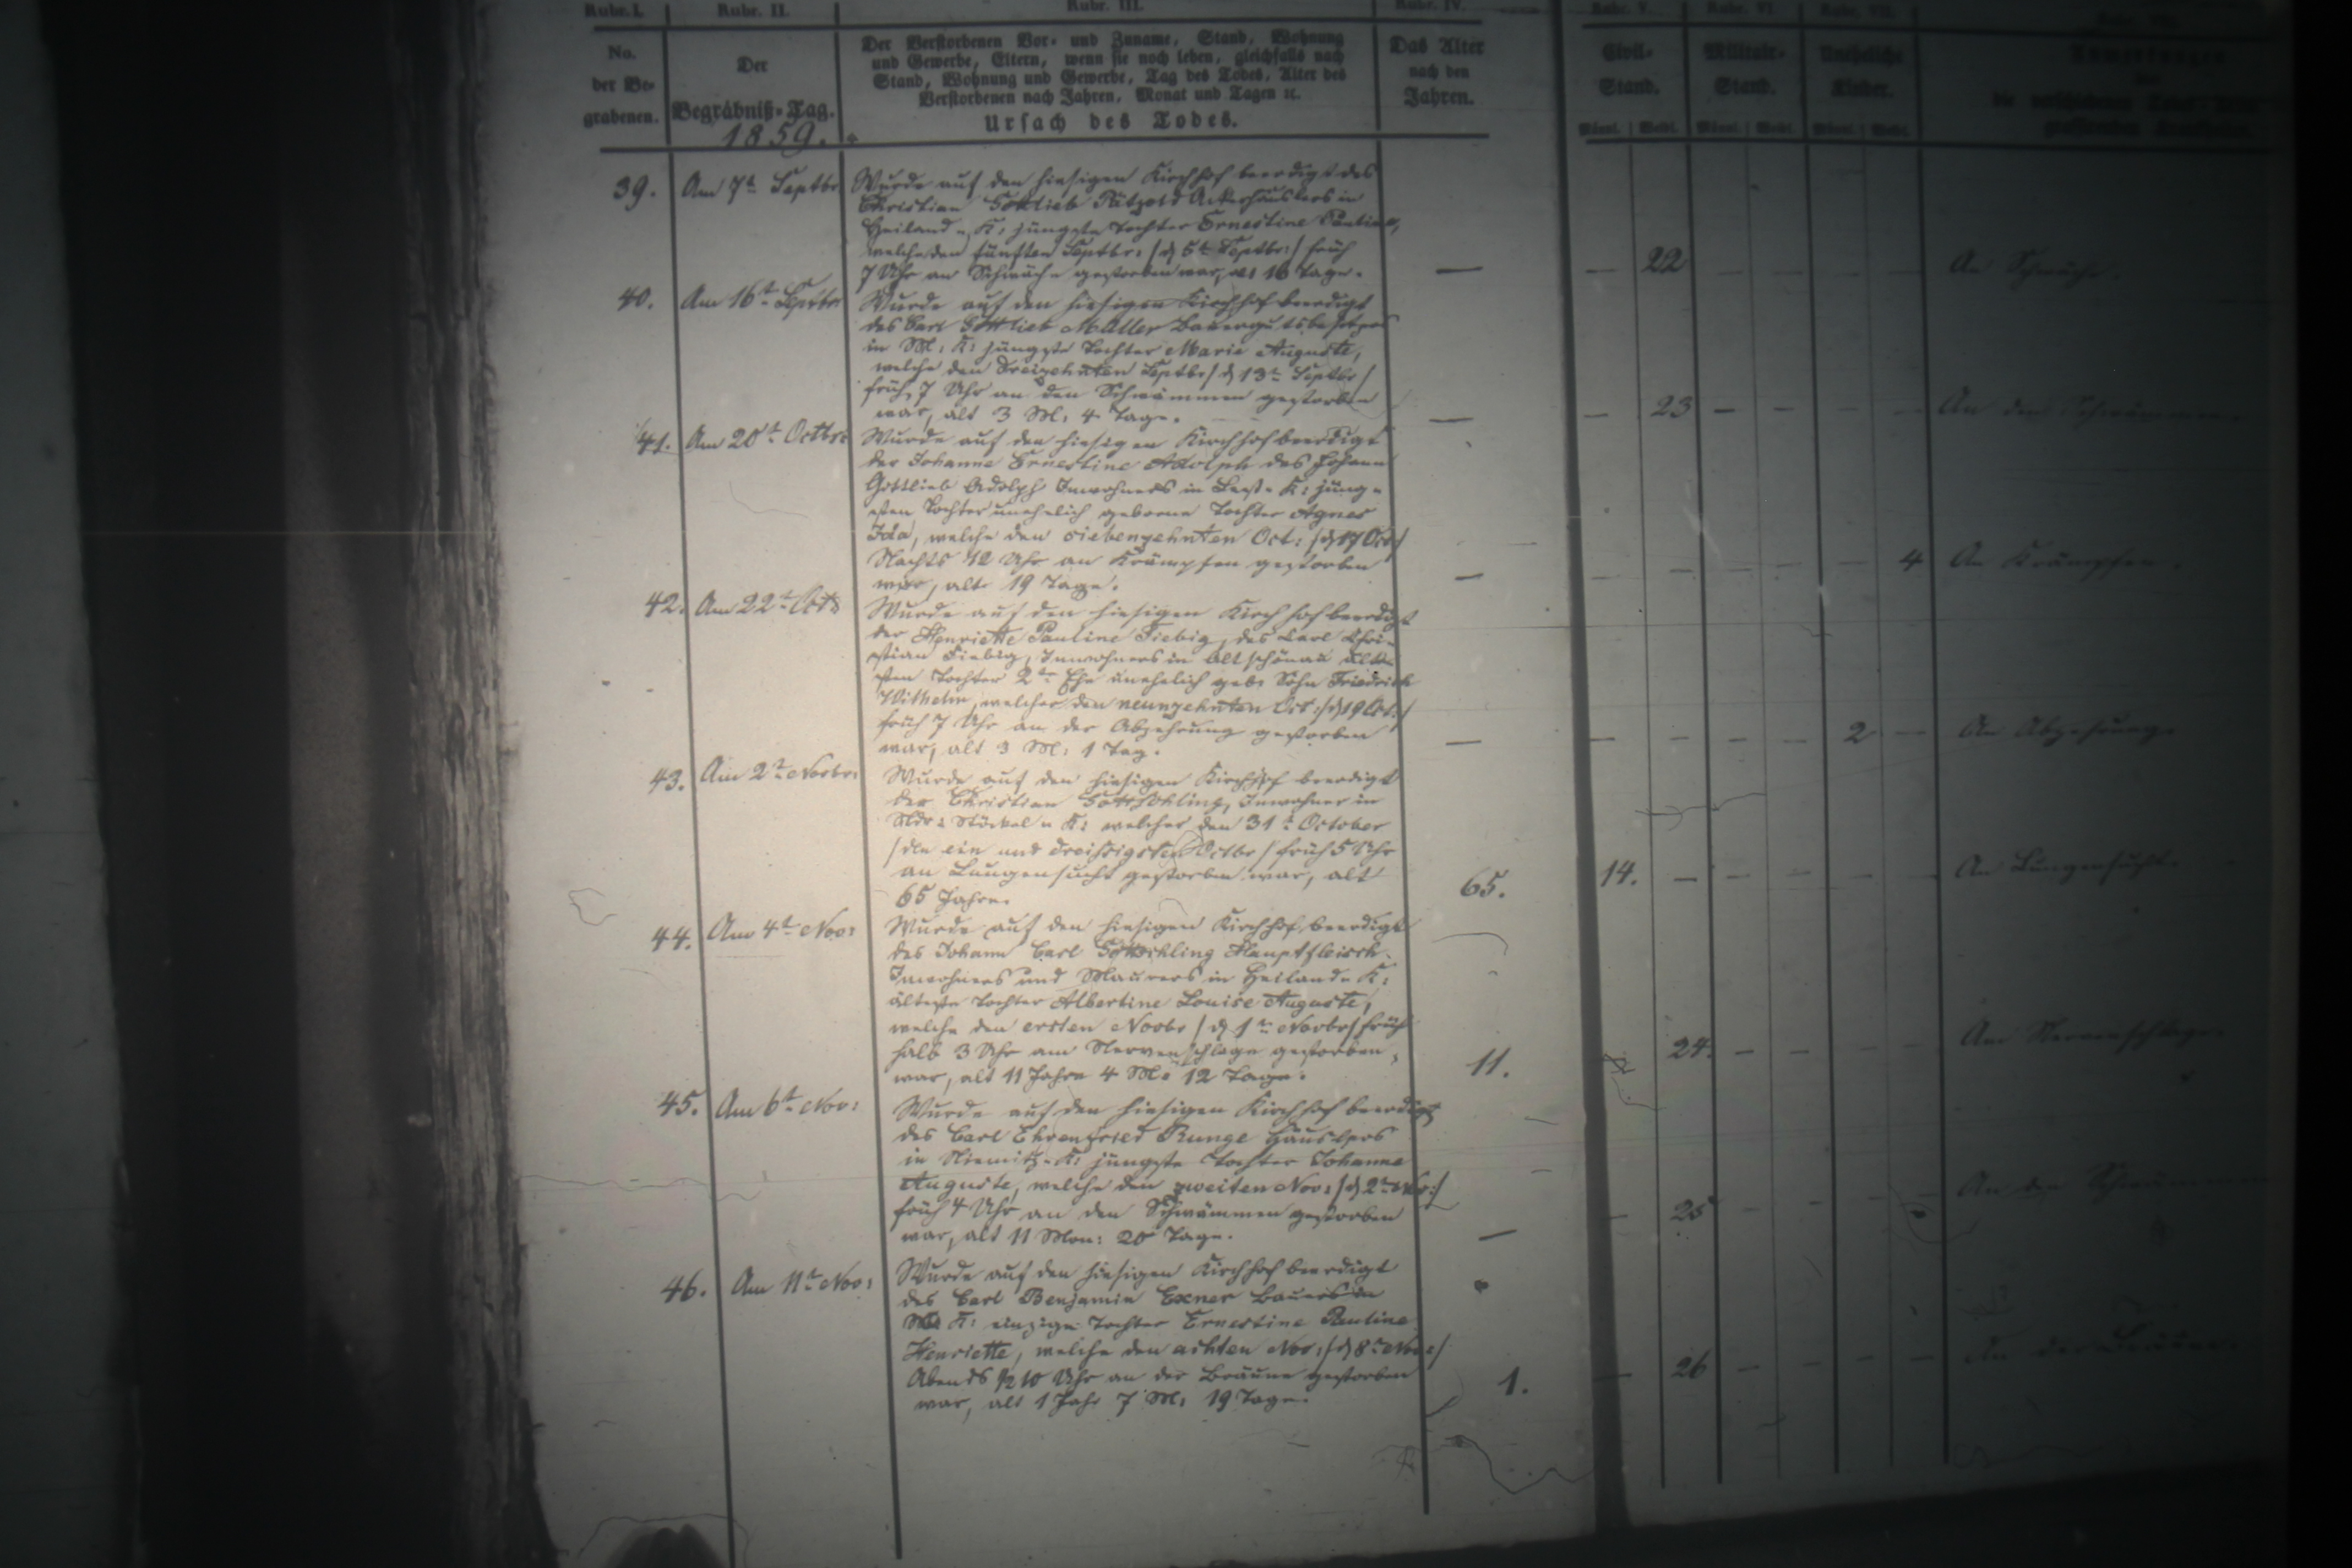 Rubr. I. Rubr. II. Rubr. III. Rubr. IV. Rubr. V. Rubr. VI. Rubr. VII.
No. der Be- grabenen.
Der Begräbniß-Tag.
1859.
Der Verstorbenen Vor- und Zuname, Stand, Wohnung
und Gewerbe, Eltern, wenn sie noch leben, gleichfalls nach
Stand, Wohnung und Gewerbe, Tag des Todes, Alter des
Verstorbenen nach Jahren, Monat und Tagen ꝛc.
Ursach des Todes.
Das Alter nach den Jahren.
Civil- Stand.
Militair- Stand.
Uneheliche Kinder.
Männl. Weibl. Männl. Weibl. Männl. Weibl.
39. Am 7t Septbr Wurde auf den hiesigen Kirchhof beerdigt des
Christian Gottlieb Ackerhäuslers in
Heiland-K: jüngste Tochter Ernestine Pauline,
welche den fünften Septbr: /d 5t Septbr:/ früh
7 Uhr an Schwäche gestorben war, alt 16 Tage. — — 22 — — — — An Schwäche.
40. Am 16t Septbr Wurde auf den hiesigen Kirchhof beerdigt
des Carl Gottlieb Müller Bauergutsbesitzers
in M: K: jüngste Tochter Marie Auguste,
welche den dreizehnten Septbr /d 13t Septbr/
früh 7 Uhr an den Schwämmen gestorben
war, alt 3 M: 4 Tage. — — 23 — — — — An den Schwämmen.
41. Am 20t Octbr: Wurde auf den hiesigen Kirchhof beerdigt
der Johanne Ernestine Adolph des Johann
Gottlieb Adolph Inwohners in K: jüng-
sten Tochter unehelich geborne Tochter Agnes
Ida, welche den siebenzehnten Oct: /d 17 Oct/
Nachts 12 Uhr an Krämpfen gestorben
war, alt 19 Tage. — — — — — — 4 An Krämpfen.
42. Am 22t Wurde auf den hiesigen Kirchhof beerdigt
der Henriette Pauline Fiebig, des Carl Chri-
stian Fiebig, Inwohners in Altschönau älte-
sten Tochter 2ter Ehe unehelich geb: Sohn Friedrich
Wilhelm, welcher den neunzehnten Oct: /d 19 Oct:/
früh 7 Uhr an der Abzehrung gestorben
war, alt 3 M: 1 Tag. — — — — — 2 — An Abzehrung.
43. Am 2t Novbr: Wurde auf den hiesigen Kirchhof beerdigt
der Christian Inwohner in
Ndr: Stöckel-K: welcher den 31t October
/den ein und dreißigsten Octbr/ früh 5 Uhr
an Lungensucht gestorben war, alt
65 Jahre. 65. 14. — — — — — An Lungensucht.
44. Am 4t Nov: Wurde auf den hiesigen Kirchhof beerdigt
des Johann Carl Hauptfleisch
Inwohners und Maurers in Heiland-K:
älteste Tochter Albertine Louise Auguste,
welche den ersten Novbr /d 1t Novbr/ früh
halb 3 Uhr am Nervenschlage gestorben
war, alt 11 Jahre 4 M: 12 Tage. 11. 24. — — — — Am Nervenschlage.
45. Am 6t Nov: Wurde auf den hiesigen Kirchhof beerdigt
des Carl Ehrenfried Runge Häuslers
in K: jüngste Tochter Johanne
Auguste, welche den zweiten Nov: /d 2t Nov:/
früh 4 Uhr an den Schwämmen gestorben
war, alt 11 Mon: 20 Tage. — — 25 — — — — An den Schwämmen
46. Am 11t Nov: Wurde auf den hiesigen Kirchhof beerdigt
des Carl Benjamin Exner Bauers in
K: einzige Tochter Ernestine Pauline
Henriette, welche den achten Nov: /d 8t Nov:/
Abends ½10 Uhr an der Bräune gestorben
war, alt 1 Jahr 7 M: 19 Tage. 1. — 26 — — — — An der Bräune.